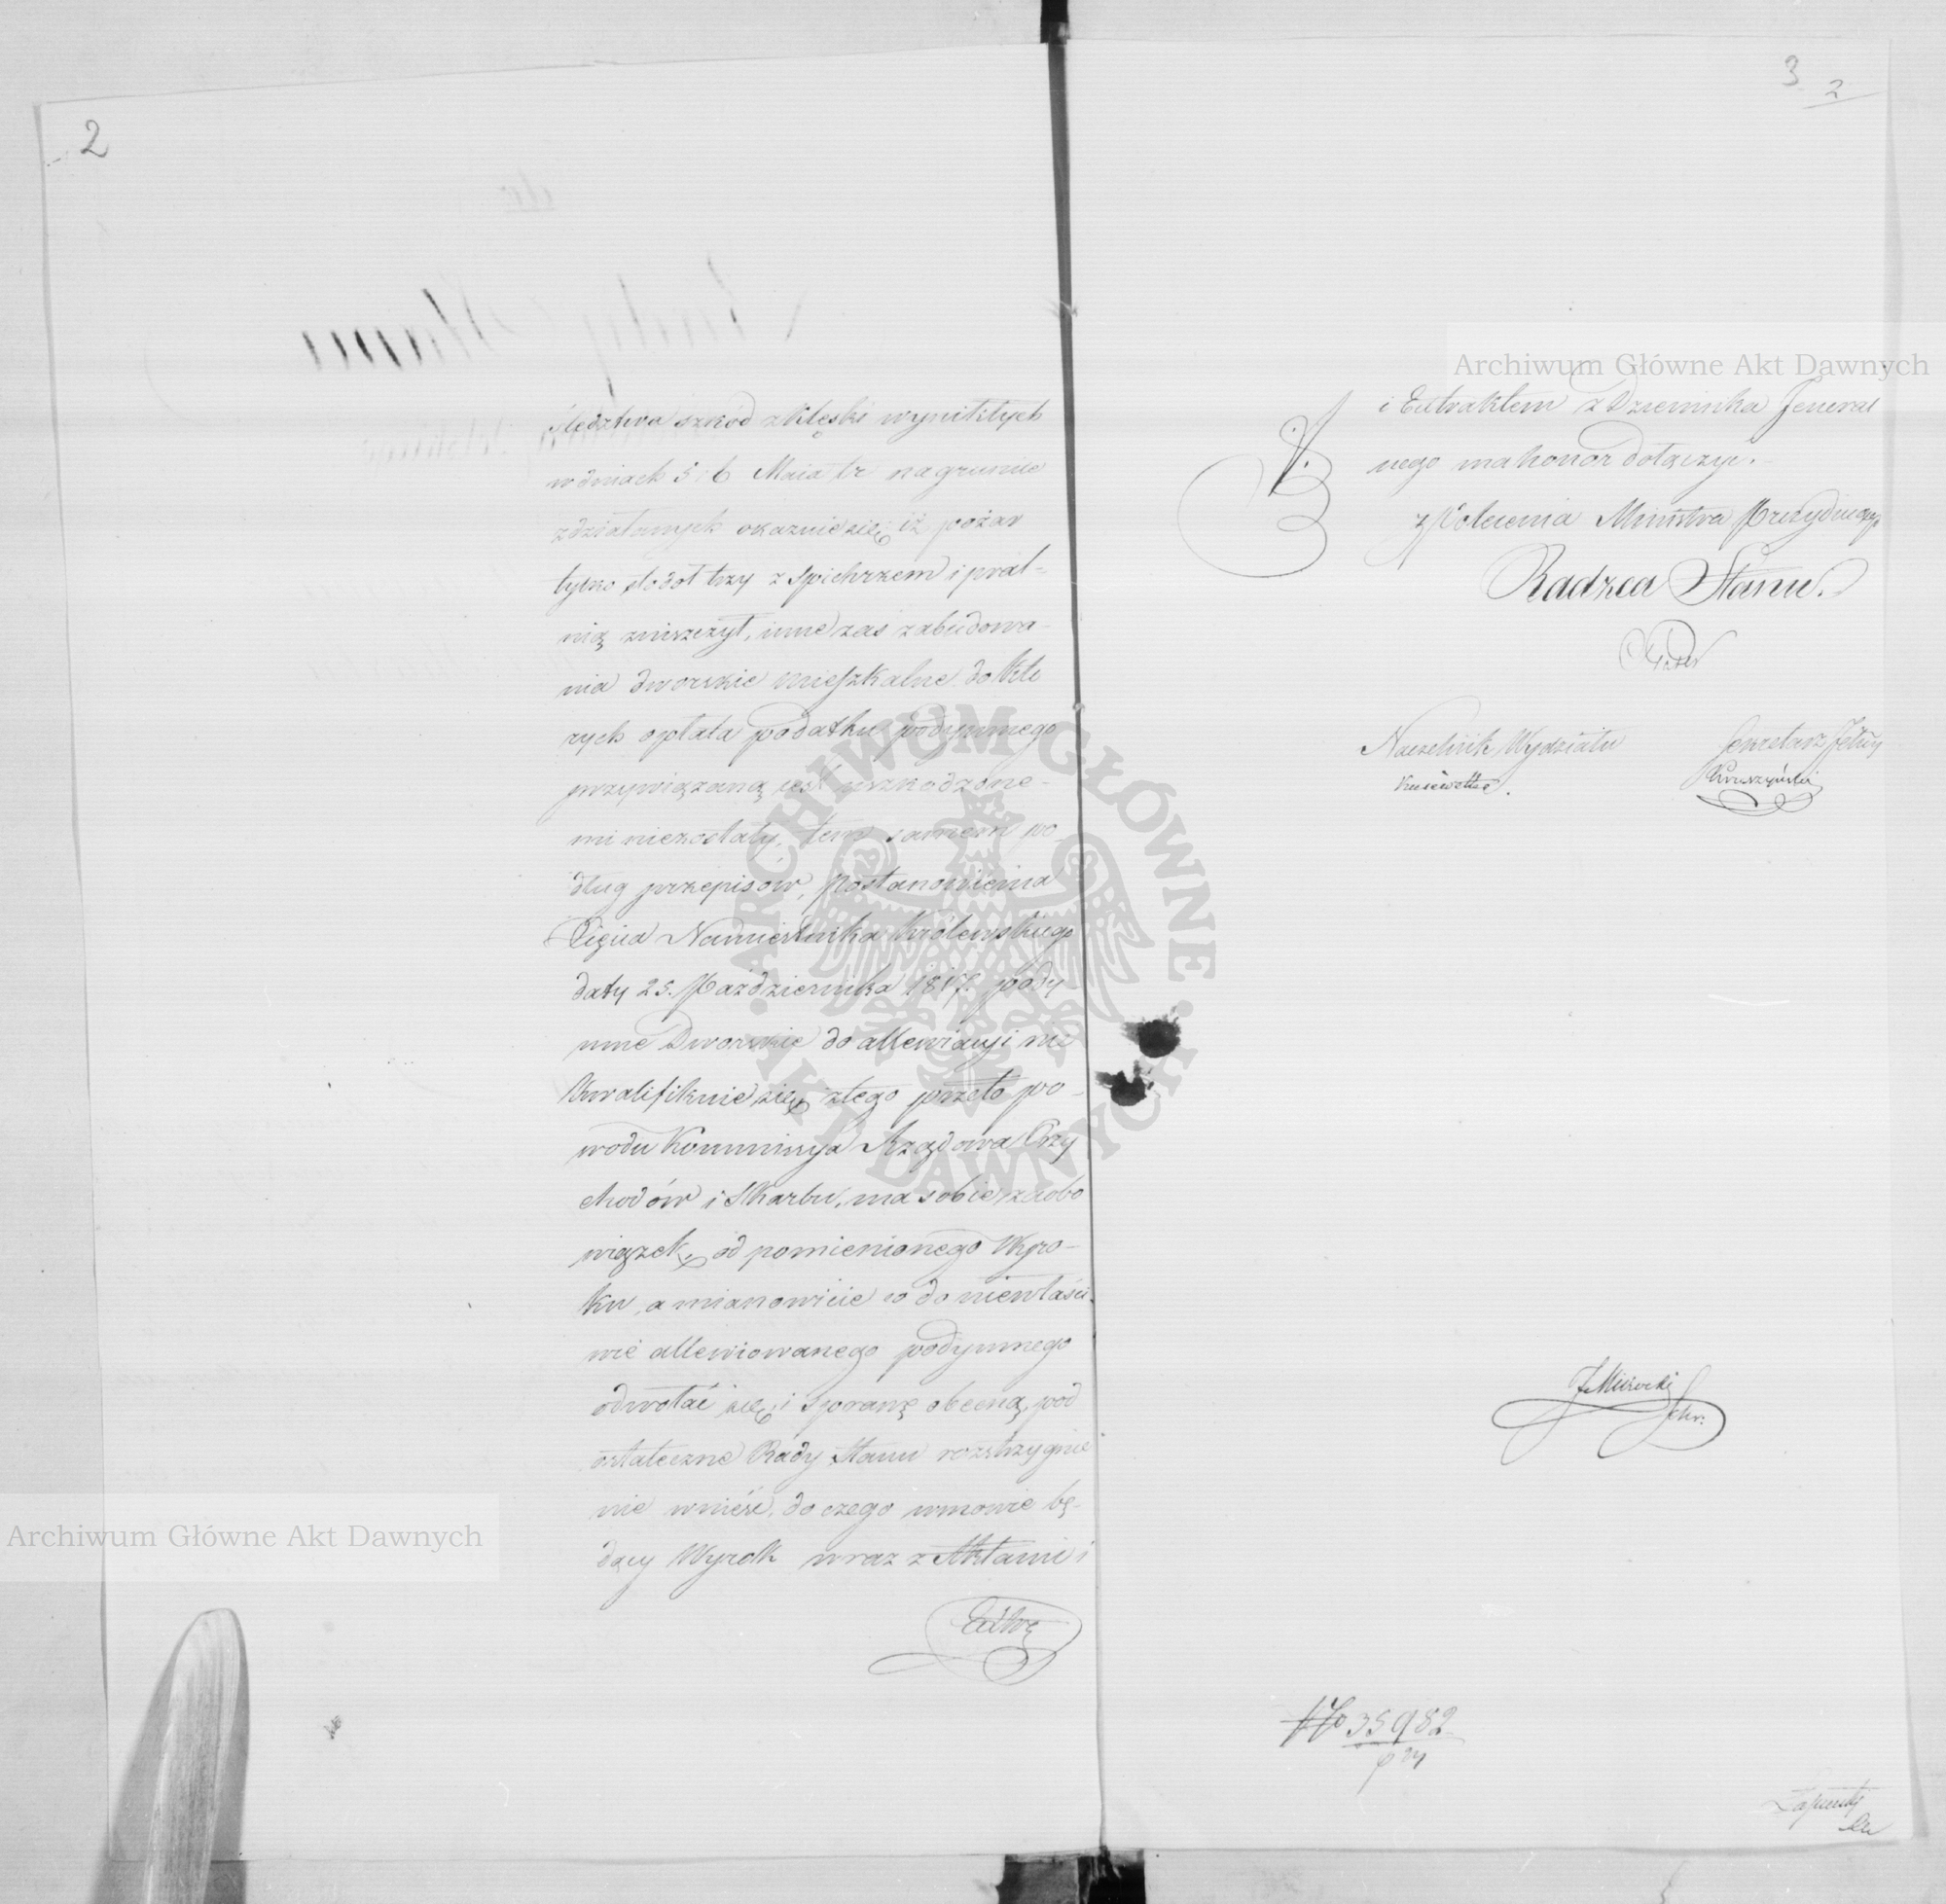 2
śledztwa szkód z klęski wynikłych
w dniach 5 i 6 Maia br na gruncie
zdziałanych okazuie się, iż pożar
tylko stodoł trzy z spichrzem i pral-
nią zniszczył, inne zaś zabudowa-
nia dworskie mieszkalne do któ
rych opłata podatku podymnego
przywiązaną iest uszkodzone-
mi niezostały, tem samem po-
dług przepisów, postanowienia
Xięcia Namiestnika Królewskiego
daty 25. Października 1817. pody-
mne Dworskie do allewiacyi nie
kwalifikuie się, z tego przeto po-
wodu Kommissya Rządowa Przy
chodów i Skarbu, ma sobie za obo
wiązek, od pomienionego Wyro-
ku, a mianowicie co do niewłaści
wie allewiowanego podymnego
odwołać się, i sprawę obecną, pod
ostateczne Rady Stanu rozstrzygnie
nie wnieść, do czego w mowie bę-
dący Wyrok wraz z Aktami i
3
2
i Extraktem z Dziennika Jeneral
nego ma honor dołączyć.
z Polecenia Ministra Prezyduiącego
Radzca Stanu.
Naczelnik Wydziału
Sekretarz Jlny
Kruszyński
No 35982
Archiwum Główne Akt Dawnych
Archiwum Główne Akt Dawnych
ARCHIWUM GŁÓWNE AKT DAWNYCH